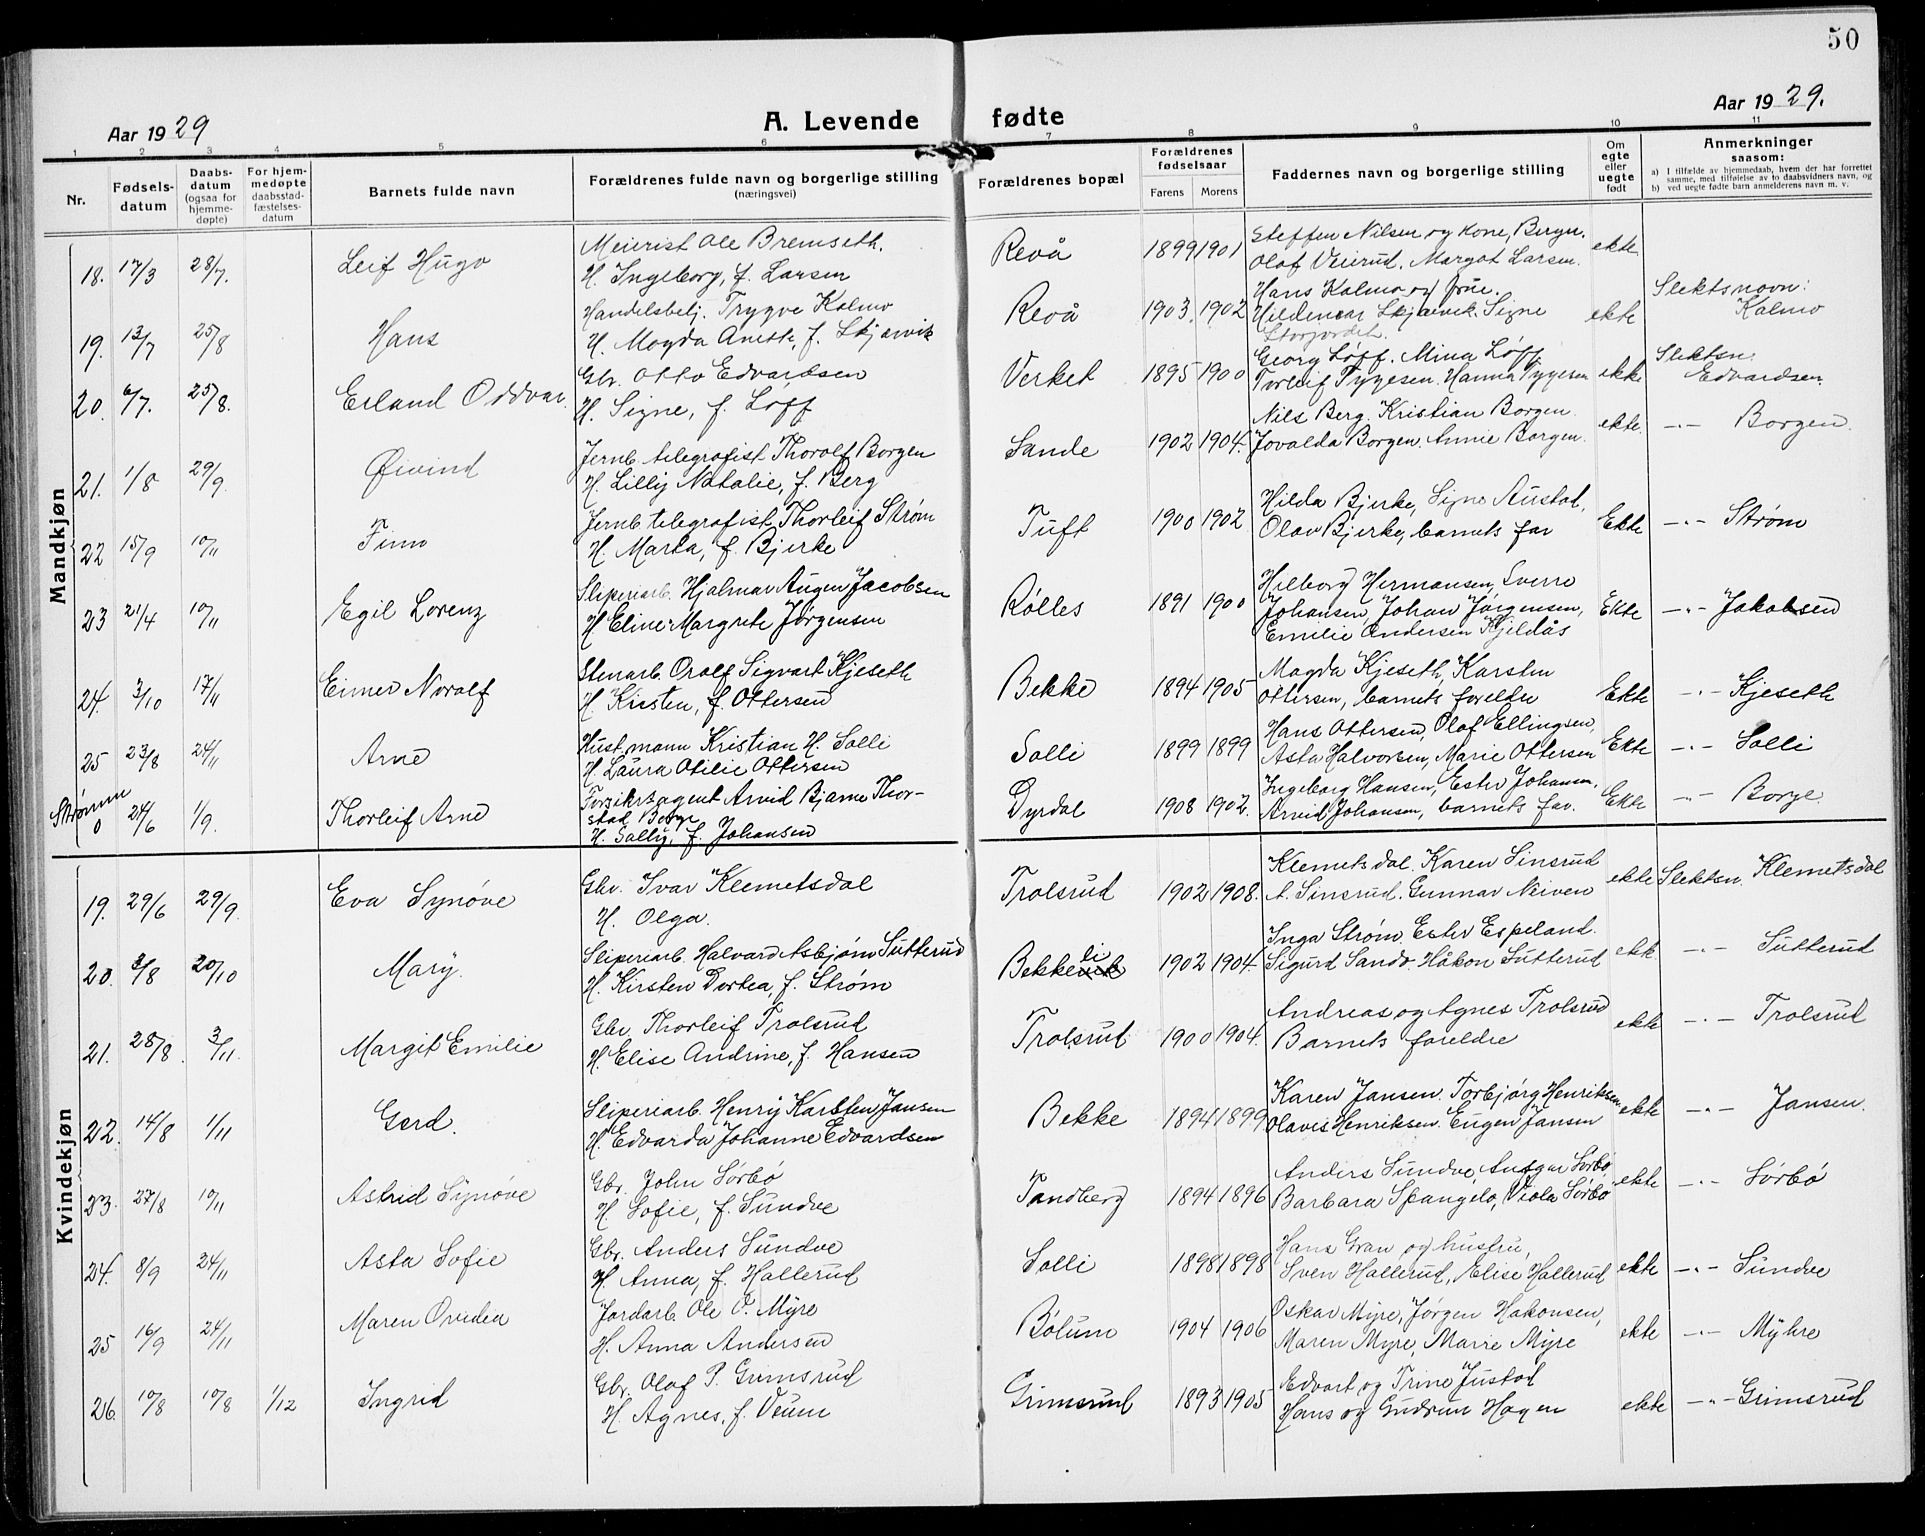 50
Aar 1929
A. Levende fødte
Aar 1929.
1 2 3 4 5 6 7 8 9 10 11
Nr.
Fødsels-datum
Daabs-datum (ogsaa for hjemme-døpte)
For hjem-medøpte daabsstad-fæstelses-datum
Barnets fulde navn
Forældrenes fulde navn og borgerlige stilling (næringsvei)
Forældrenes bopæl
Forældrenes fødselsaar
Farens Morens
Faddernes navn og borgerlige stilling
Om egte eller uegte født
Anmerkninger saasom:
a) I tilfælde av hjemmedaab, hvem der har forrettet samme, med tilføielse av to daabsvidners navn, og
b) ved uegte fødte barn anmelderens navn m. v.
Mandkjøn
Meierist Ole Bremseth. Steffen Nilsen og kone, Bergn.
18. 17/3 28/7. Leif Hugo H. Ingeborg, f. Larsen Revå 1899 1901 Olaf Veierud. Margot Larsen. ekte
Handelsbetj. Trygve Kalmo Hans Kalmo og frue. Slektsnavn:
19. 13/7 25/8 Hans H. Magda Anette, f. Skjærvik Revå 1903. 1902 Hildemar Skjærvik. Signe Storjordet. ekte Kalmo
Gbr. Otto Edvardsen Georg Løff. Mina Løff. Slektsn.
20. 6/7. 25/8. Erland Oddvar. H. Signe, f. Løff Verket 1895 1900 Torleif Tygesen. Hanna Tygesen ekte Edvardsen.
Jernb. telegrafist Thorolf Borgen Nils Berg. Kristian Borgen.
21. 1/8 29/9. Øivind H. Lilly Natalie, f. Berg Sande 1902 1904. Jovalda Borgen. Annie Borgen. ekte. -"- Borgen.
Jernb. telegrafist Thorleif Strøm Hilda Bjerke, Signe Austad,
22 15/9 10/11 Finn H. Marta, f. Bjerke Tuft 1900 1902 Olav Bjerke, barnets far Ekte -"- Strøm
Sliperiarb. Hjalmar Augen Jacobsen Hilborg Hermansen, Sverre
23 21/4 10/11 Egil Lorenz H. Eline Margrete Jørgensen Rølles 1891 1900 Johansen, Johan Jørgensen, Ekte -"- Jakobsen
Emilie Andersen Kjeldås
Stenarb. Oralf Sigvart Kjeseth Magda Kjeseth, Karsten
24. 3/10 17/11 Einer Noralf H. Kirsten, f. Ottersen Bekke 1894 1905 Ottersen, barnets foreldre Ekte -"- Kjeseth
Hustmann Kristian H. Solli Hans Ottersen, Olaf Ellingsen,
25 23/8 24/11 Arne H. Laura Otilie Ottersen Solli 1899 1899 Asta Halvorsen, Marie Ottersen Ekte -"- Solli
Forsikr.sagent Arvid Bjarne Thor- Ingeborg Hansen, Ester Johansen,
Strømm 0 24/6 1/9. Thorleif Arne stad Borge Dyrdal 1908 1902. Arvid Johansen, barnets far. Ekte -"- Borge.
H. Sally, f. Johansen
Kvindekjøn
Gbr. Ivar Klemetsdal Klemetsdal. Karen Sinsrud
19. 29/6 29/9. Eva Synøve H. Olga. Trolsrud 1902 1908. A. Sinsrud. Gunnar Neiven ekte Slektsn. Klemetsdal
Sliperiarb. Halvard Asbjørn Sutterud Inga Strøm Ester Espeland.
20. 3/8 20/10 Mary. H. Kirsten Dortea, f. Strøm Bekkeli 1902 1904. Sigurd Sando. Håkon Sutterud ekte -"- Sutterud
Gbr. Thorleif Trolsrud Andreas og Agnes Trolsrud
21. 28/8. 3/11. Margit Emilie H. Elise Andrine, f. Hansen Trolsrud 1900 1904. Barnets foreldre ekte -"- Trolsrud
Sliperiarb. Henry Karsten Jansen Karen Jansen. Torbjørg Henriksen.
22. 14/8 1/11 Gerd. H. Edvarda Johanne Edvardsen Bekke 1894 1899 Olavis Henriksen. Eugen Jansen ekte -"- Jansen.
Gbr. John Sørbø Anders Sundve, Ansgar Sørbø
23. 27/8 10/11 Astrid Synøve H. Sofie, f. Sundve Tandberg 1894 1896 Barbara Spangelo, Viola Sørbø ekte -"- Sørbø
Gbr. Anders Sundve Hans Gran og hustru,
24. 8/9 24/11 Asta Sofie H. Anna, f. Hallerud Solli 1898 1898 Sven Hallerud, Elise Hallerud ekte -"- Sundve
Jordarb. Ole O. Myre Oskar Myre, Jørgen Hakonsen,
25 16/9 24/11 Maren Ovidia H. Anna Andersen Bølum 1904 1906 Maren Myre, Marie Myre ekte -"- Myhre
Gbr. Olaf P. Grimsrud Edvart og Trine Justad
26. 10/8 10/8 1/12 Ingrid H. Agnes, f. Veum Grimsrud 1893 1905 Hans og Gudrun Hagen ekte -"- Grimsrud